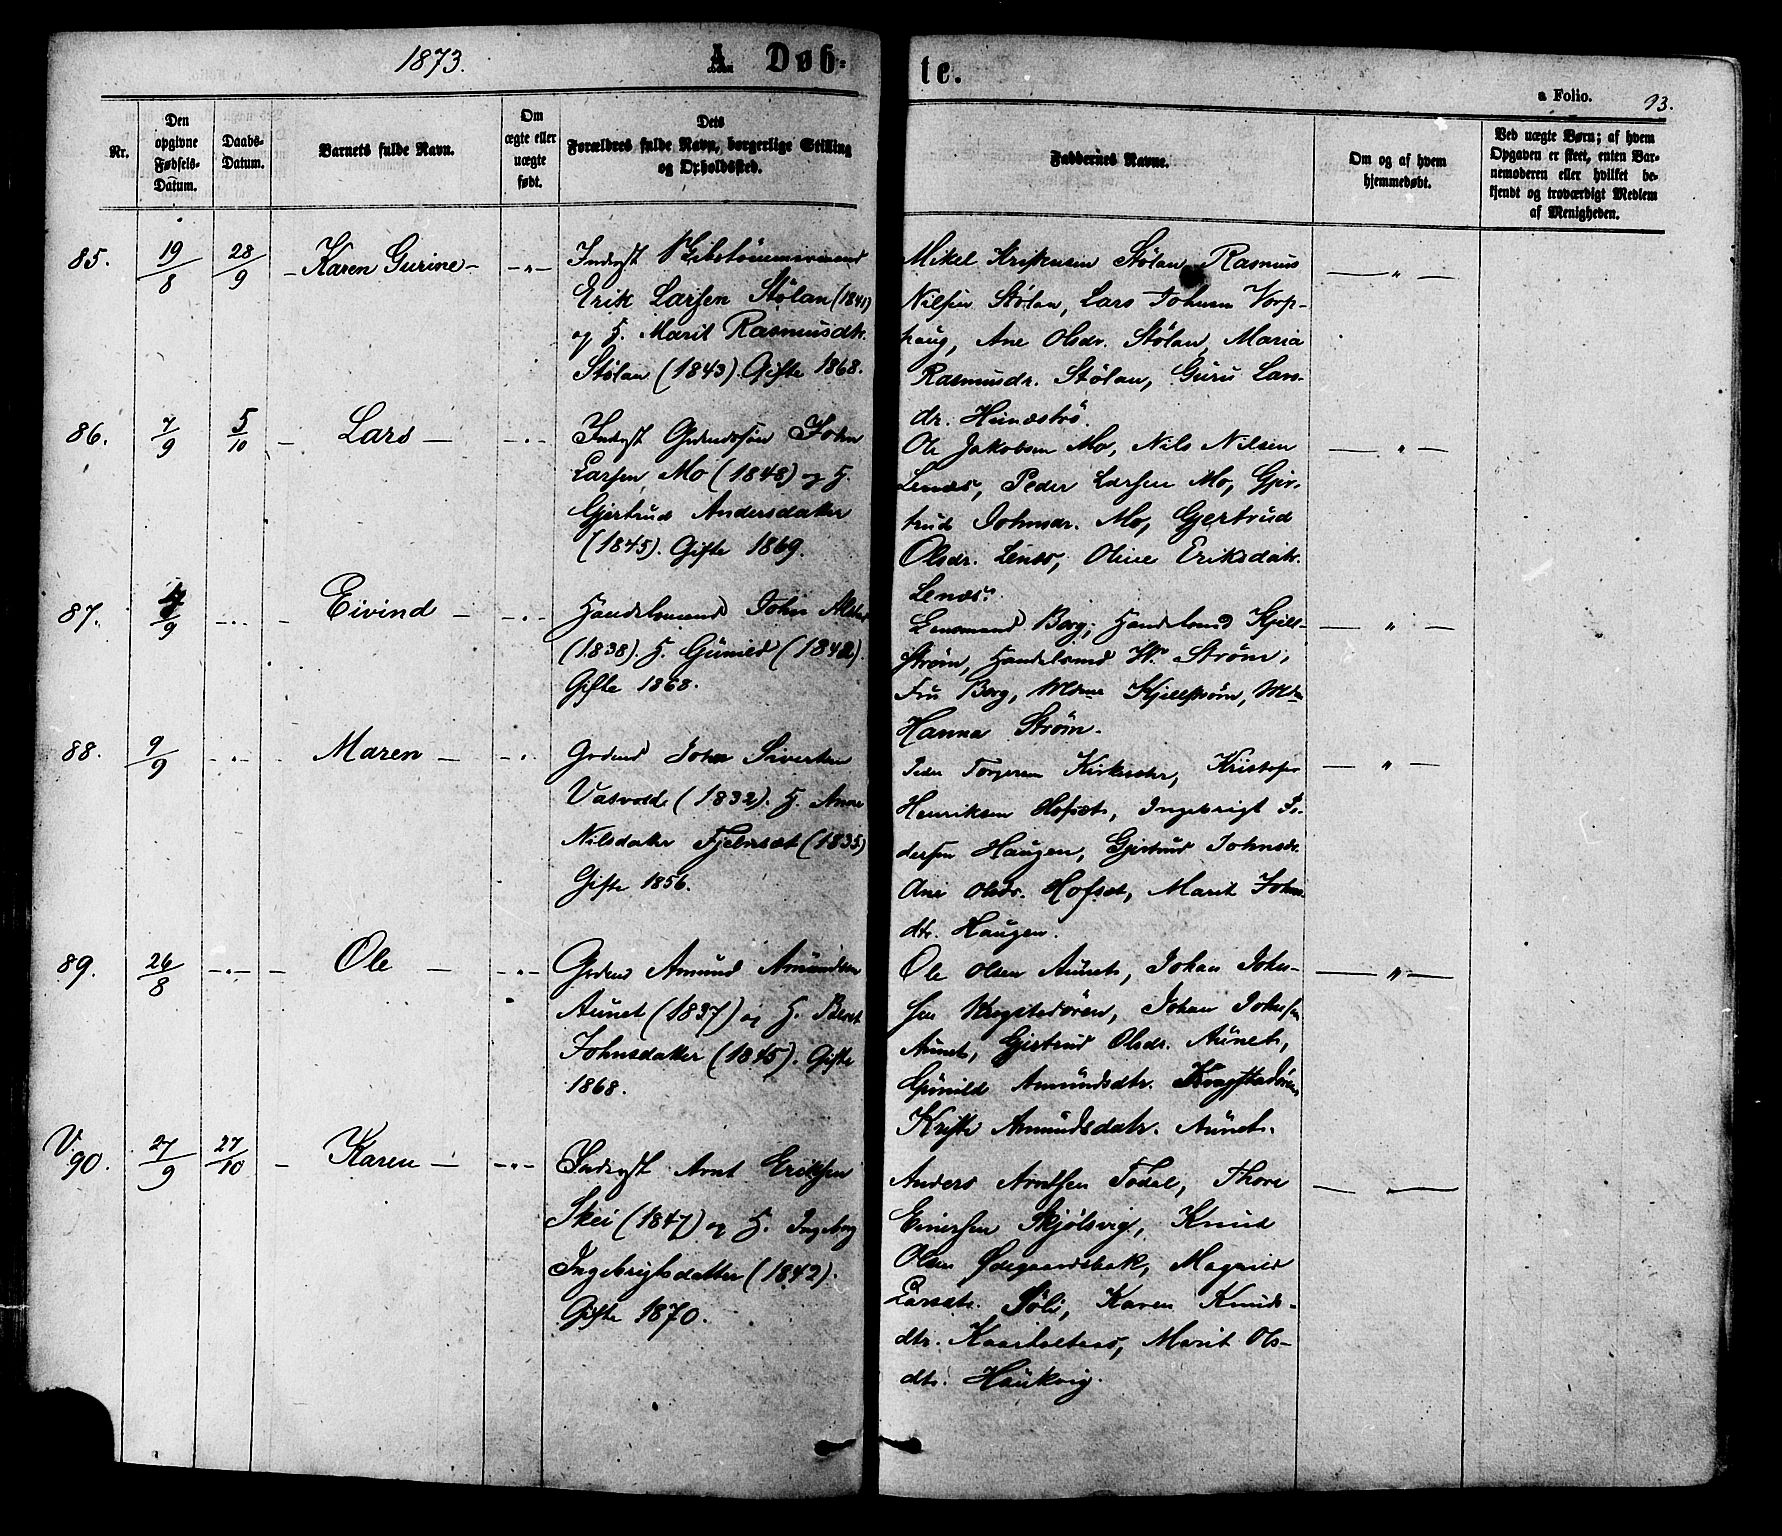 1873.
A. Døb-
te.
a Folio. 93.
Nr.
Den opgivne Fødsels-Datum.
Daabs-Datum.
Barnets fulde Navn.
Om ægte eller uægte født.
Dets Forældres fulde Navn, borgerlige Stilling og Opholdssted.
Faddernes Navne.
Om og af hvem hjemmedøbt.
Ved uægte Børn; af hvem Opgaven er skeet, enten Barnemoderen eller hvilket bekjendt og troværdigt Medlem af Menigheden.
85. 19/8 28/9 – Karen Gurine – – „ –
Inderst
Erik Larsen Stølan (1841)
og H. Marit Rasmusdtr.
Stølan (1843). Gifte 1868.
Mikel Kristensen Stølan, Rasmus
Nilsen Stølan, Lars Johnsen Vorp-
haug, Ane Olsdr. Stølan, Maria
Rasmusdr. Stølan, Guru Lars-
dr. Hundstrø.
– „ –
86. 7/9 5/10 – Lars – – „ –
Inderst Grdmdssøn John
Larsen Mo (1848) og H.
Gjertrud Andersdatter
(1845). Gifte 1869.
Ole Jakobsen Mo, Nils Nilsen
Lenæs, Peder Larsen Mo, Gjer-
trud Johnsdr. Mo, Gjertrud
Olsdr. Lenæs, Oline Eriksdatr.
Lenæs.
– „ –
87. /9 – „ – – Eivind – – „ –
Handelsmand John
(1838). H. Gunild (1842).
Gifte 1868.
Lensmand Borg, Handelsmd Kjell-
strøm, Handelsmd W. Strøm,
Fru Borg, Mdme Kjellstrøm,
Hanna Strøm.
– „ –
88. 9/9 – „ – – Maren – – „ –
Grdmd John Sivertsen
Vasvolde (1832). H. Anne
Nilsdatter Fjelnset (1835)
Gifte 1856.
Peder Torgersen Kirksæter, Kristofer
Henriksen Hofset, Ingebrigt Pe-
dersen Haugen, Gjertrud Johnsdr.
Ane Olsdr. Hofset, Marit Johns-
dtr. Haugen.
– „ –
89. 26/8 – „ – – Ole – – „ –
Grdmd Amund Amundsen
Aunet (1837) og H. Beret
Johnsdatter (1845). Gifte
1868.
Ole Olsen Aunet, Johan John-
sen Krogstadøren, Johan Johnsen
Aunet, Gjertrud Olsdr. Aunet,
Gunild Amundsdtr. Krogstadøren
Kristi Amundsdatr. Aunet.
– „ –
V 90. 27/9 27/10 – Karen – – „ –
Inderst Arnt Eriksen
Skei (1847) og H. Ingeborg
Ingebrigtsdatter (1842).
Gifte 1870.
Anders Arntsen Todal, Thore
Einersen Skjølsvig, Knud
Olsen Ødegaardsbak, Magnild
Larsdtr. Søli, Karen Knuds-
dtr. Marit Ols-
dtr. Haukvig.
– „ –